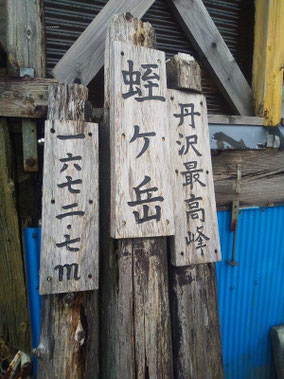 丹沢最高峰
蛭ヶ岳
一六七二・七m